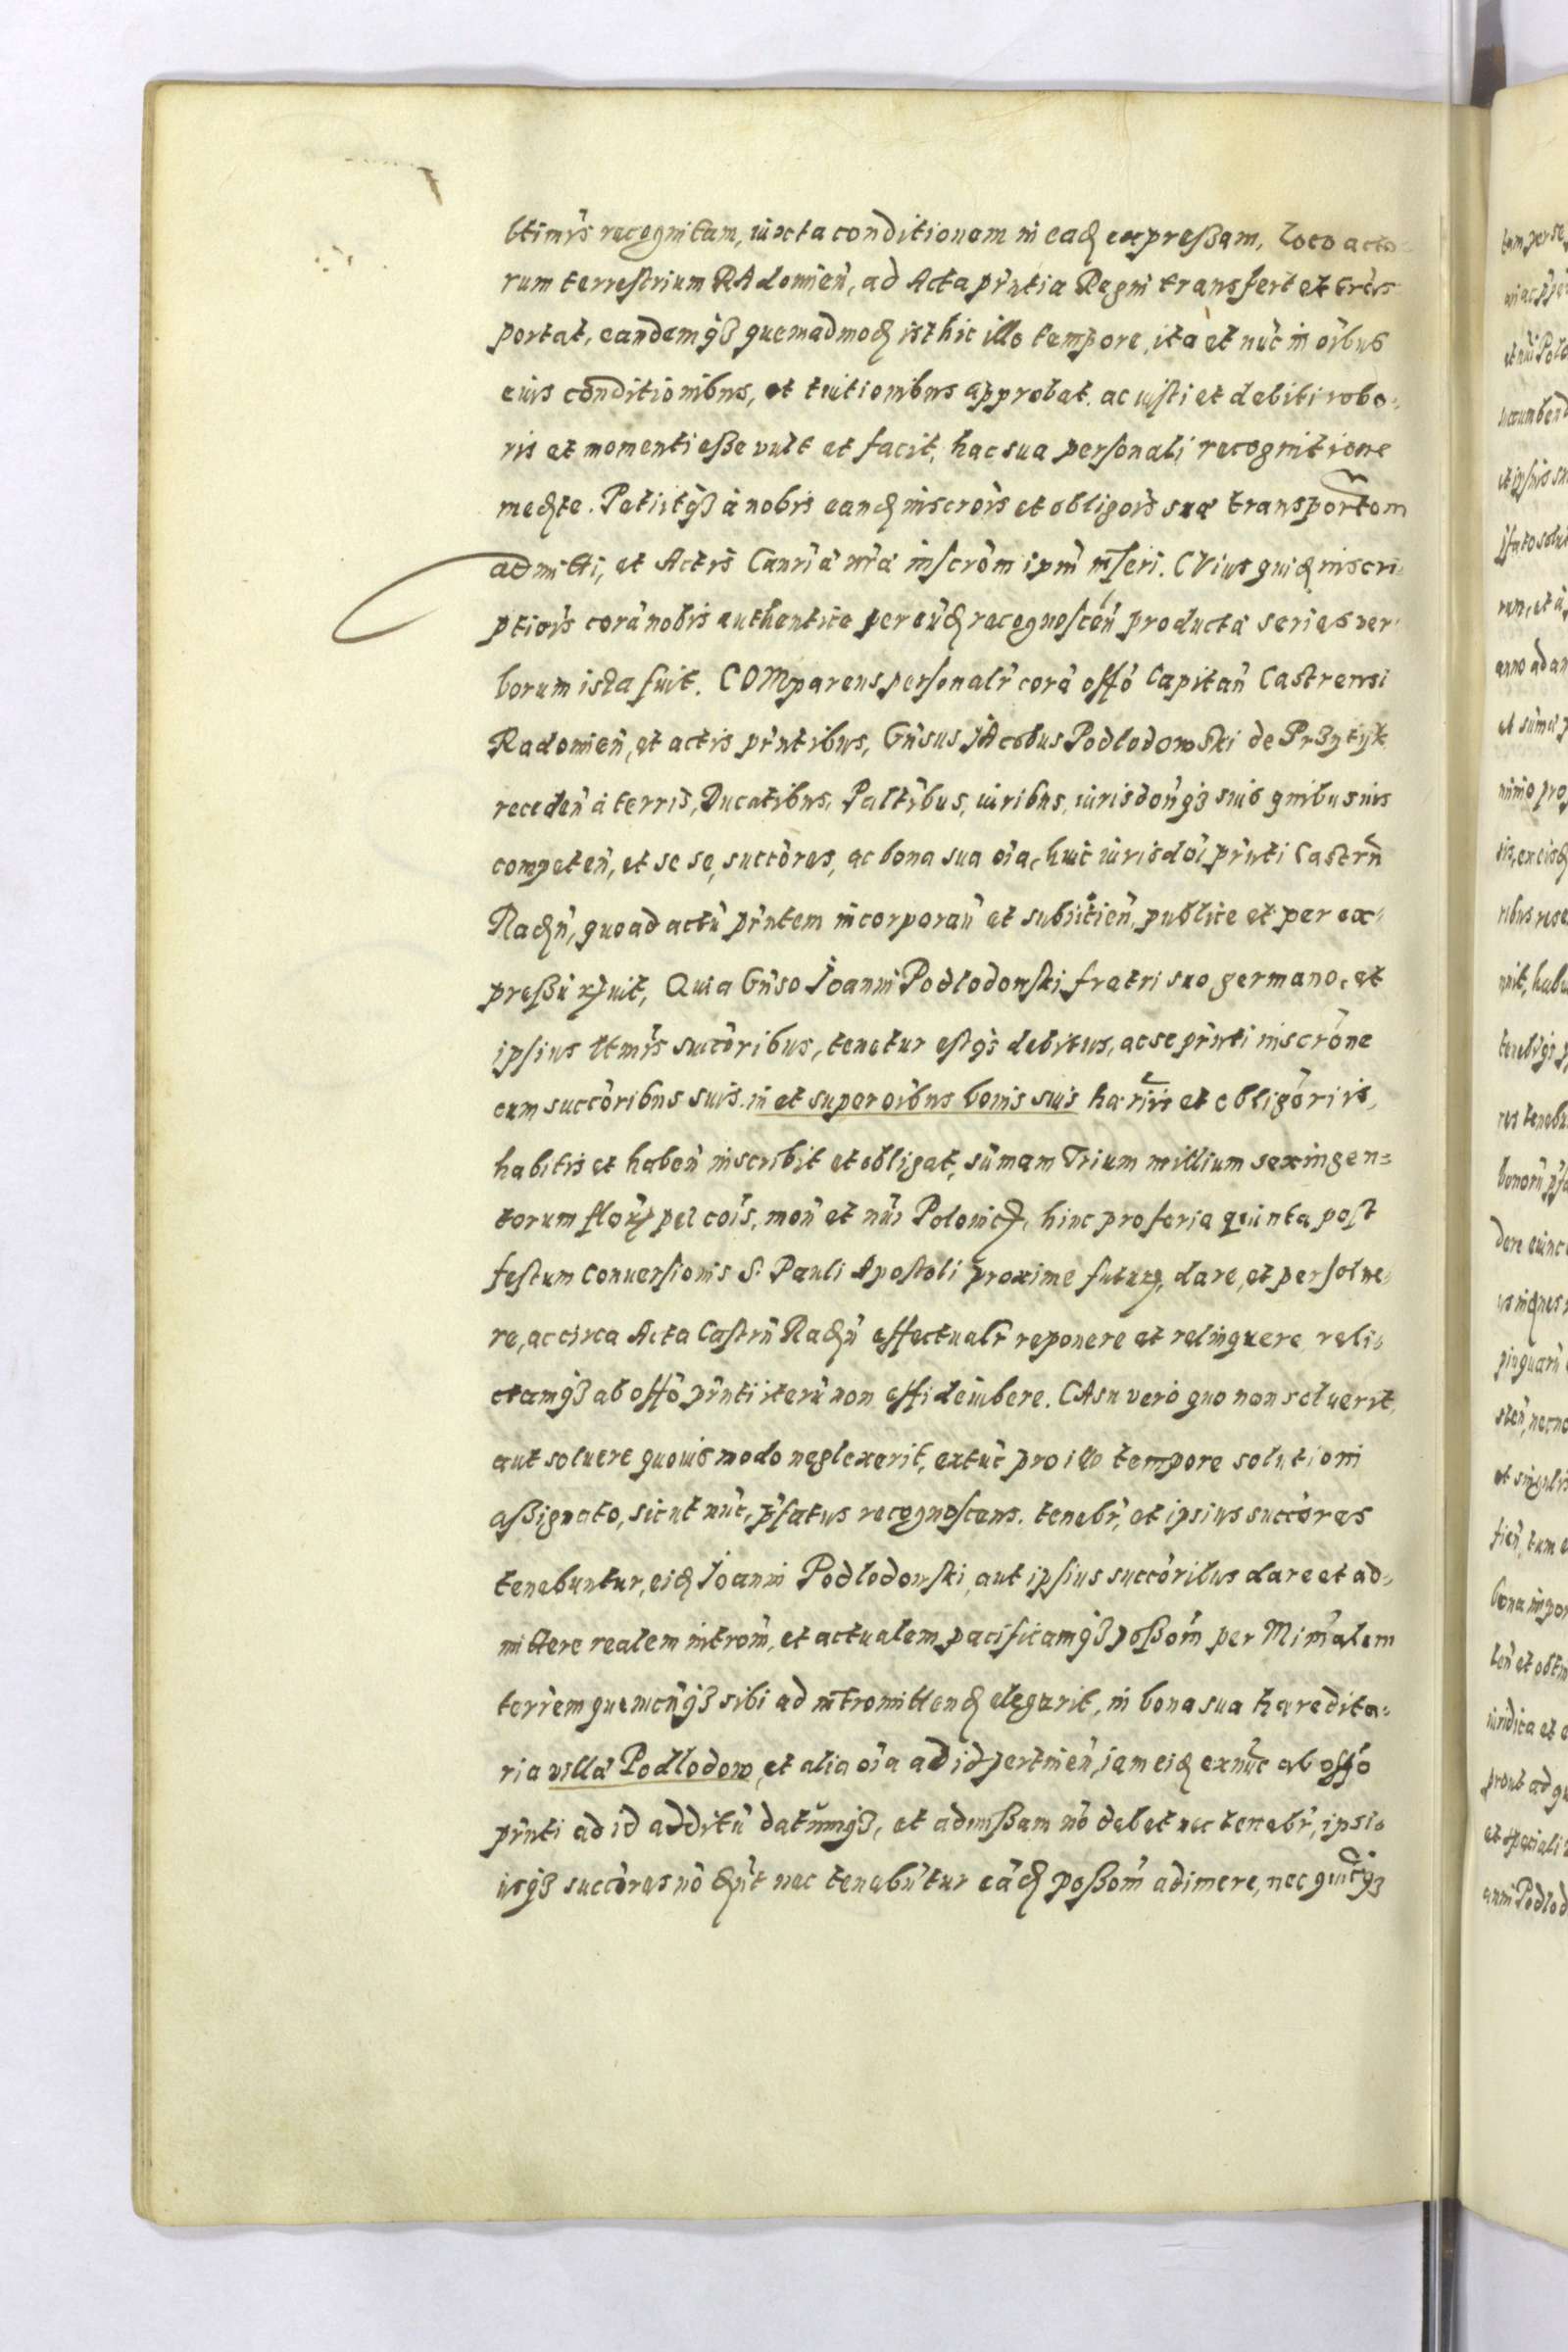 ltimis recognitam, iuxta conditionem in eadẽ expreßam, loco acto-
rum terrestrium RAdomień, ad Acta pñtia Regni transfert et trãs
portat, eandemq3 quemadmodũ isthic illo tempore, ita et nũc in oĩbus
eius conditionibus, et tuitionibus approbat. ac iusti et debiti robo-
ris et momenti eße vult et facit, hac sua personali recognitione
med̃te. Petijtq3 à nobis eand̃ inscrõis et obligõis suæ transportõem
admitti, et Actis Canriæ nr̃æ inscrõm ipm̃ inseri. CVius quid̃ inscri-
ptiõis corã nobis authentice per eũd̃ recognoscẽn producta series ver-
borum ista fuit. COMparens personalr̃ corã offõ Capitañ Castrensi
Radomień, et actis pñtibus, Gñsus JAcobus Podlodowski de Przytyk
receden̄ à terris, Ducatibus, Paltĩbus, iuribus, iurisdoñq3 suis quibusuis
competeñ, et se se, succõres, ac bona sua oĩa, huic iurisdõi pñti Castrñ
Rad̃ñ, quo ad actũ pñtem incorporañ et subijcień, publice et per ex-
preßũ rẽuit, Quia Gñso Joanni Podlodowski fratri suo germano, et
ipsius ltmĩs succõribus, tenetur estq3 debitus, ac se pñti inscrõne
cum succõribus suis. in et super oĩbus bonis suis hær̃ijs et obligõrijs,
habitis et habeñ inscribit et obligat, sũmam Trium millium sexingen-
torum florũ pel cõis, moñ et nũi Polonic̃, hinc pro feria quinta post
festum Conuersionis S. Pauli Apostoli proxime futurũ, dare, et persolue-
re, ac circa Acta Castrñ Rad̃ñ effectualr̃ reponere et relinquere reli-
ctamq3 ab offõ pñti iterũ non effideiubere. CAsu verò quo non soluerit,
aut soluere quouis modo neglexerit, extũc pro illo tempore solutioni
aßignato, sicut nũc, p̃fatus recognoscens. tenebr̃, et ipsius succõres
tenebuntur, eid̃ Joanni Podlodowski, aut ipsius succõribus dare et ad-
mittere realem intrõm, et actualem pacificamq3 poßõm per Minr̃alem
terr̃em quemcũq3 sibi ad intromittend̃ elegerit, in bona sua hæredita-
ria villã Podlodow, et alia oĩa ad id pertineñ, iam eid̃ exnũc ab offõ
pñti ad id additũ datũmq3, et admißam nõ debet nec tenebr̃, ipsi-
usq3 succõres nõ d̃ñt nec tenebũtur eãd̃ poßõm adimere, nec quicq3